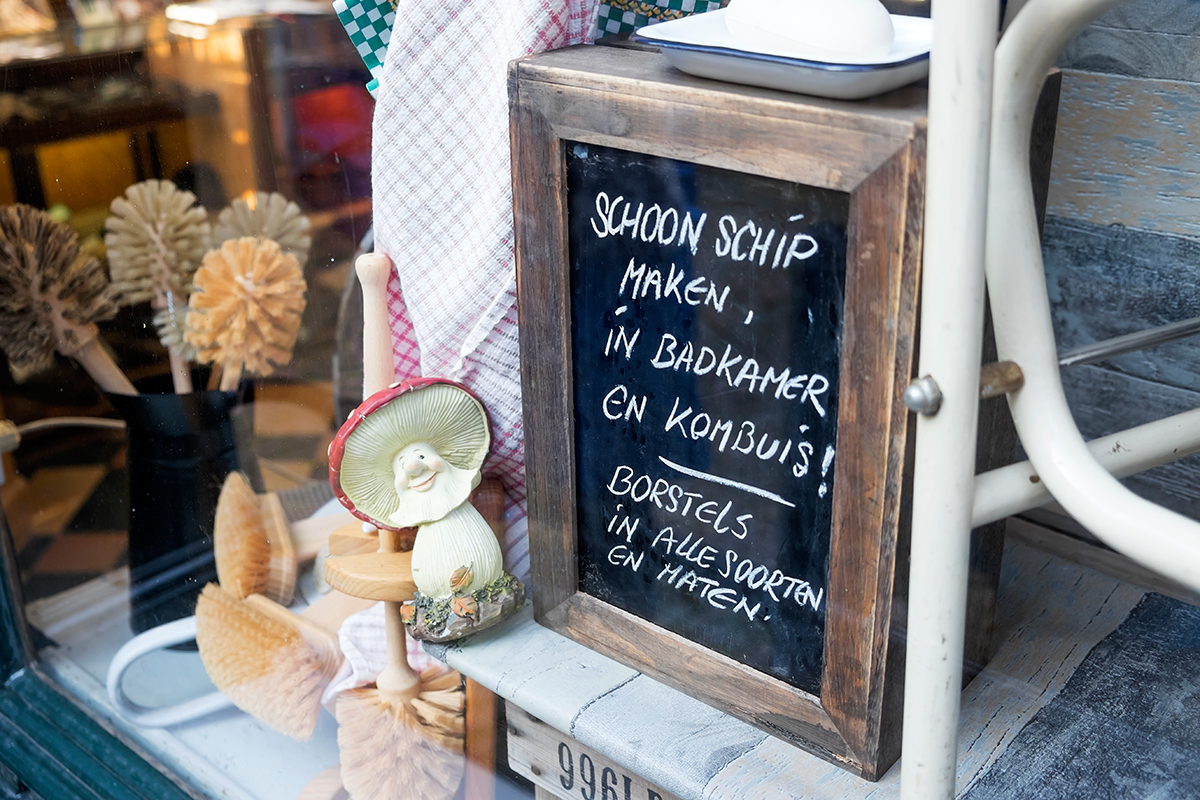 SCHOON SCHIP
MAKEN,
IN BADKAMER
EN KOMBUIS!
BORSTELS
IN ALLE SOORTEN
EN MATEN.